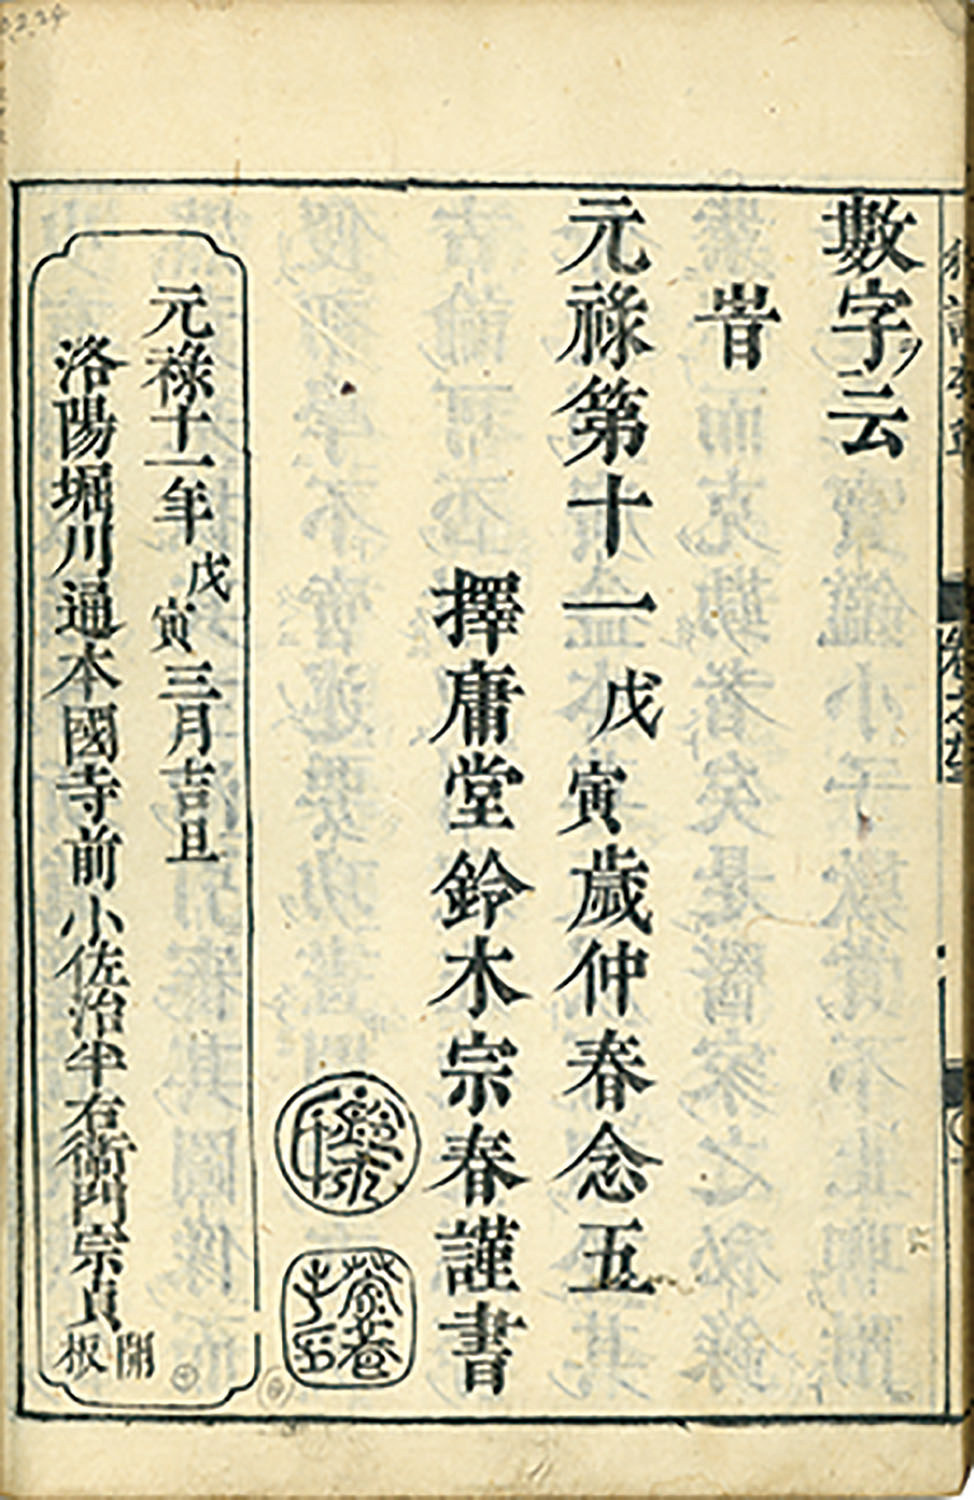 數字云
旹
元祿第十一戊寅歲仲春念五
擇庸堂鈴木宗春謹書
元祿十一年戊寅三月吉旦
洛陽堀川通本國寺前小佐治半右衞門宗貞開板